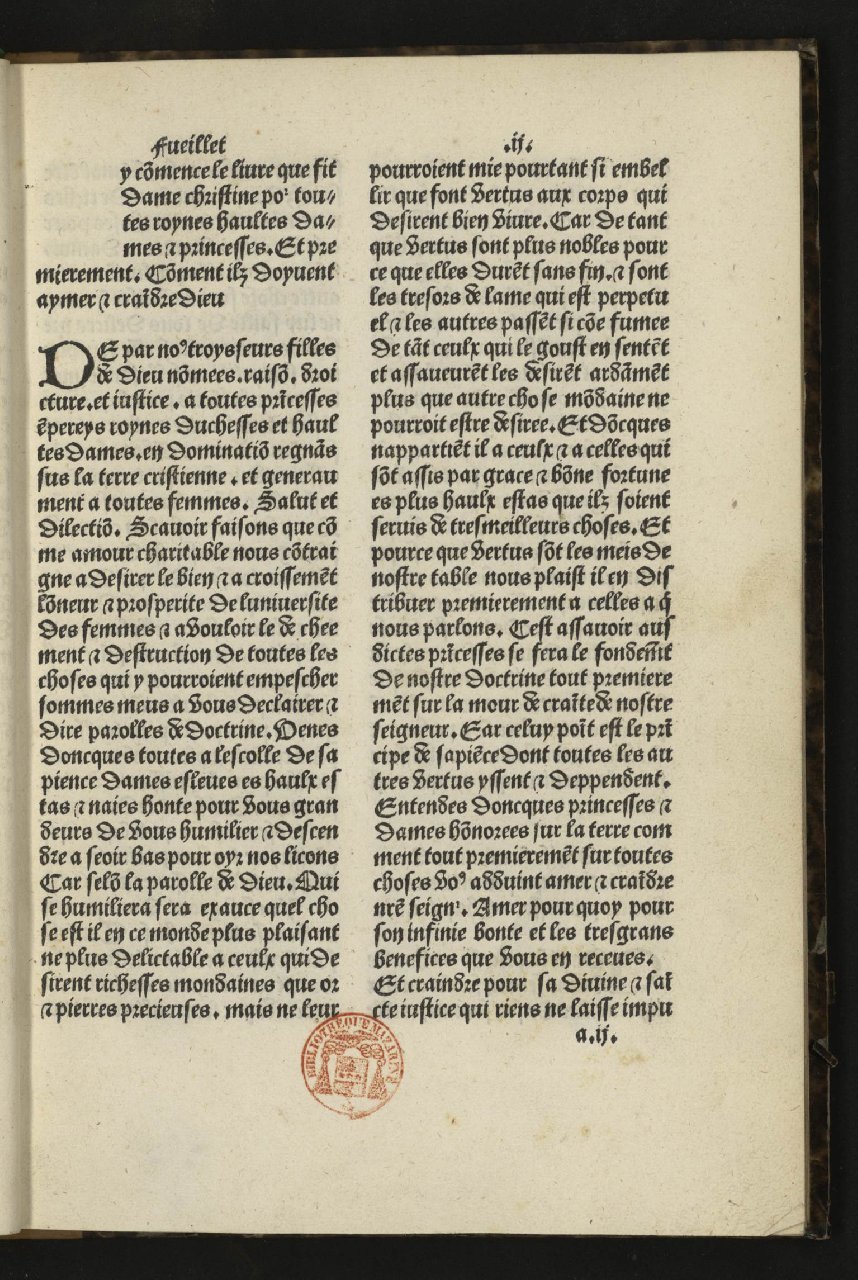 Fueillet
y cōmence le liure que fit
Dame christine po᷑ tou⸗
tes roynes haultes da⸗
mes ⁊ princesses. Et pre
mierement. Cōment ilz doyuent
aymer ⁊ craīdre Dieu
DE par noꝰ troys seurs filles
de Dieu nōmees. raisō. droi
cture. et iustice. a toutes prīcesses
ēpereys roynes duchesses et haul
tes Dames. en Dominatiō regnās
sus la terre cristienne. et generau
ment a toutes femmes. Salut et
dilectiō. Scauoir faisons que cō
me amour charitable nous cōtrai
gne a desirer le bien ⁊ a croissemēt
lōneur ⁊ prosperite de luniuersite
des femmes ⁊ a vouloir le de chee
ment ⁊ destruction de toutes les
choses qui y pourroient empescher
sommes meus a vous declairer ⁊
dire parolles de doctrine. Venes
doncques toutes a lescolle de sa
pience dames esleues es haulx es
tas ⁊ naies honte pour vous gran
deurs de vous humilier ⁊ descen
dre a seoir bas pour oyr nos licons
Car selō la parolle de dieu. Qui
se humiliera sera exauce quel cho
se est il en ce monde plus plaisant
ne plus delictable a ceulx qui de
sirent richesses mondaines que or
⁊ pierres precieuses. mais ne leur
.ij.
pourroient mie pourtant si embel
lir que font vertus aux corps qui
desirent bien viure. Car de tant
que vertus sont plus nobles pour
ce que elles durēt sans fin. ⁊ sont
les tresors de lame qui est perpetu
el ⁊ les autres passēt si cōe fumee
de tāt ceulx qui le goust en sentēt
et assaueurēt les desirēt ardāmēt
plus que autre chose mōdaine ne
pourroit estre desiree. Et dōcques
nappartiēt il a ceulx ⁊ a celles qui
sōt assis par grace ⁊ bōne fortune
es plus haulx estas que ilz soient
seruis de tresmeilleurs choses. Et
pource que vertus sōt les meis de
nostre table nous plaist il en dis
tribuer premierement a celles a q̄
nous parlons. Cest assauoir aus
dictes prīcesses se fera le fondem̄t
de nostre doctrine tout premiere
mēt sur la mour de craīte de nostre
seigneur. Ear celuy poīt est le prī
cipe de sapiēce dont toutes les au
tres vertus yssent ⁊ deppendent.
Entendes doncques princesses ⁊
dames hōnorees sur la terre com
ment tout premieremēt sur toutes
choses voꝰ adduint amer ⁊ craīdre
nrē seign᷑. Amer pour quoy pour
son infinie bonte et les tresgrans
benefices que vous en receues.
Et craindre pour sa diuine ⁊ saī
cte iustice qui riens ne laisse impu
a.ij.
BIBLIOTHEQUE MAZARINE